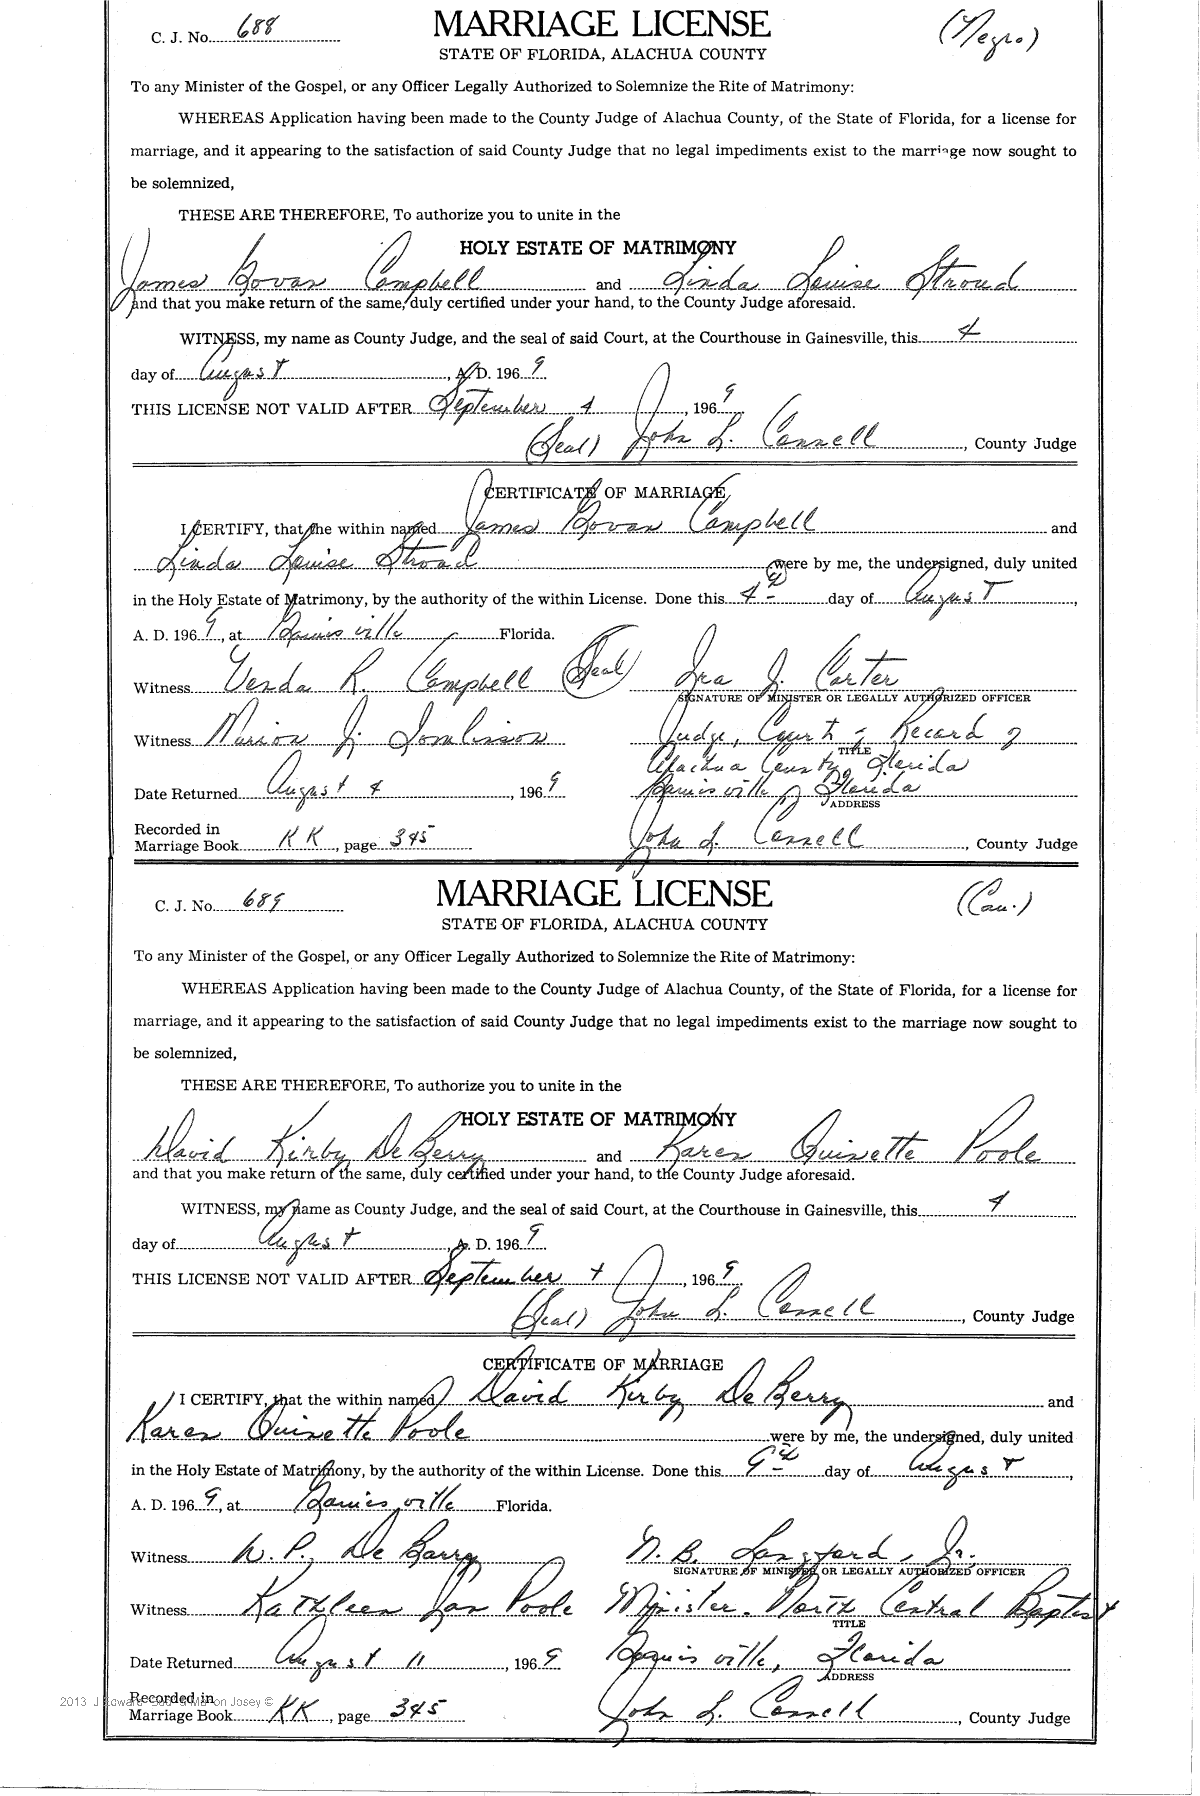 C. J. No. 688 MARRIAGE LICENSE (Negro)
STATE OF FLORIDA, ALACHUA COUNTY
To any Minister of the Gospel, or any Officer Legally Authorized to Solemnize the Rite of Matrimony:
WHEREAS Application having been made to the County Judge of Alachua County, of the State of Florida, for a license for
marriage, and it appearing to the satisfaction of said County Judge that no legal impediments exist to the marriage now sought to
be solemnized,
THESE ARE THEREFORE, To authorize you to unite in the
HOLY ESTATE OF MATRIMONY
James Govan Campbell and Linda Louise Stroud
and that you make return of the same, duly certified under your hand, to the County Judge aforesaid.
WITNESS, my name as County Judge, and the seal of said Court, at the Courthouse in Gainesville, this 4
day of August, A. D. 1969
THIS LICENSE NOT VALID AFTER September 4, 1969
(Seal) John L. Connell, County Judge
CERTIFICATE OF MARRIAGE
I CERTIFY, that the within named James Govan Campbell and
Linda Louise Stroud were by me, the undersigned, duly united
in the Holy Estate of Matrimony, by the authority of the within License. Done this 4th day of August,
A. D. 1969, at Gainesville Florida.
Witness R. Campbell (Seal) Ira J. Carter
SIGNATURE OF MINISTER OR LEGALLY AUTHORIZED OFFICER
Witness Marion J. Tomlinson Judge, Court of Record of
TITLE
Alachua County, Florida
Date Returned August 4, 1969 Gainesville, Florida
ADDRESS
Recorded in
Marriage Book KK, page 345 John L. Connell, County Judge
C. J. No. 689 MARRIAGE LICENSE (Cau.)
STATE OF FLORIDA, ALACHUA COUNTY
To any Minister of the Gospel, or any Officer Legally Authorized to Solemnize the Rite of Matrimony:
WHEREAS Application having been made to the County Judge of Alachua County, of the State of Florida, for a license for
marriage, and it appearing to the satisfaction of said County Judge that no legal impediments exist to the marriage now sought to
be solemnized,
THESE ARE THEREFORE, To authorize you to unite in the
HOLY ESTATE OF MATRIMONY
David Kirby DeBerry and Karen Quinette Poole
and that you make return of the same, duly certified under your hand, to the County Judge aforesaid.
WITNESS, my name as County Judge, and the seal of said Court, at the Courthouse in Gainesville, this 4
day of August, A. D. 1969
THIS LICENSE NOT VALID AFTER September 4, 1969
(Seal) John L. Connell, County Judge
CERTIFICATE OF MARRIAGE
I CERTIFY, that the within named David Kirby DeBerry and
Karen Quinette Poole were by me, the undersigned, duly united
in the Holy Estate of Matrimony, by the authority of the within License. Done this 9th day of August,
A. D. 1969, at Gainesville Florida.
Witness W. P. DeBarry N. B. Langford, Jr.
SIGNATURE OF MINISTER OR LEGALLY AUTHORIZED OFFICER
Witness Kathleen Jan Poole Minister. North Central Baptist
TITLE
Date Returned August 11, 1969 Gainesville, Florida
ADDRESS
Recorded in
Marriage Book KK, page 345 John L. Connell, County Judge